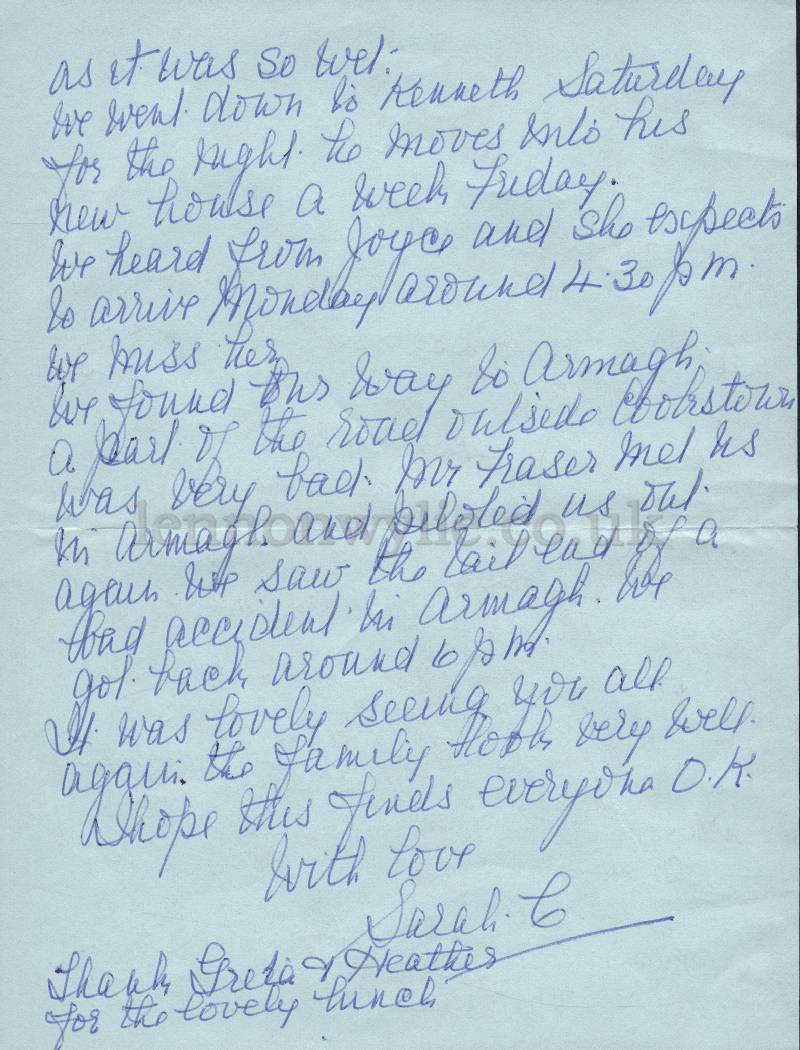 as it was so wet.
We went down to Kenneth Saturday
for the night. he moves into his
new house a week Friday.
We heard from Joyce and she expects
to arrive Monday around 4.30 pm.
we miss her
We found our way to Armagh.
a part of the road outside Cookstown
was very bad. Mr Fraser met us
lennonwylie.co.uk
in Armagh and piloted us out
again. We saw the tail end of a
bad accident in Armagh. We
got back around 6 pm.
It was lovely seeing you all
again. the family look very well.
I hope this finds everyone O.K.
With love
Sarah. C
Thank Greta & Heather
for the lovely lunch